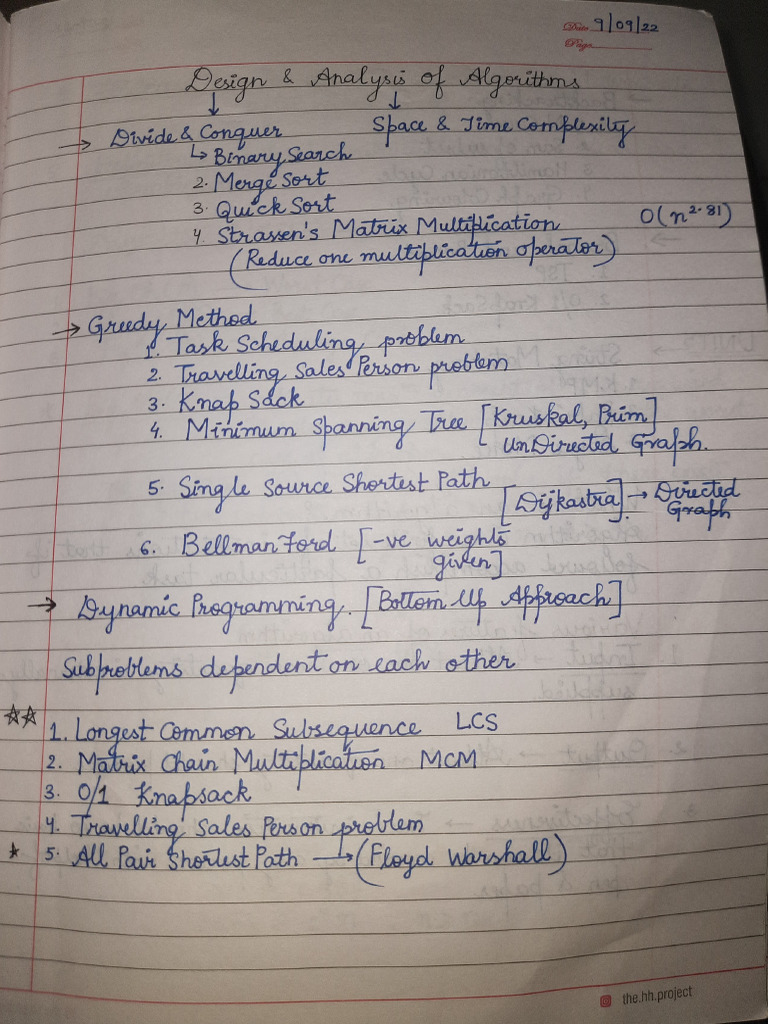 Date 9/09/22
Page
Design & Analysis of Algorithms
↓ ↓
→ Divide & Conquer Space & Time Complexity
↳ Binary Search
2. Merge Sort
3. Quick Sort
4. Strassen's Matrix Multiplication O(n^2.81)
(Reduce one multiplication operator)
→ Greedy Method
1. Task Scheduling problem
2. Travelling Sales Person problem
3. Knap Sack
4. Minimum Spanning Tree [Kruskal, Prim]
UnDirected Graph.
5. Single Source Shortest Path
[Dijkastra] → Directed
Graph
6. Bellman Ford [-ve weights
given]
→ Dynamic Programming. [Bottom Up Approach]
Subproblems dependent on each other
☆☆
1. Longest Common Subsequence LCS
2. Matrix Chain Multiplication MCM
3. 0/1 Knapsack
4. Travelling Sales Person problem
★ 5. All Pair Shortest Path → (Floyd Warshall)
the.hh.project